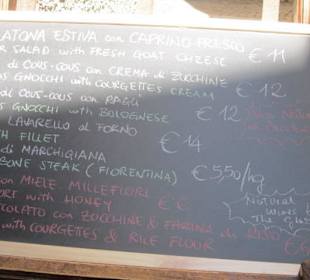 LATONA ESTIVA con CAPRINO FRESCO
SALAD with FRESH GOAT CHEESE €11
di COUS-COUS con CREMA di ZUCCHINE
GNOCCHI with COURGETTES CREAM €12
al COUS-COUS con RAGÙ
GNOCCHI with BOLOGNESE €12
LAVARELLO al FORNO
FILLET €14
di MARCHIGIANA
BONE STEAK (FIORENTINA) €5,50/hg
con MIELE MILLEFIORI
with HONEY €
Natural
Wines
The Glass
COLATO con ZUCCHINE & FARINA di RISO
with COURGETTES & RICE FLOUR €